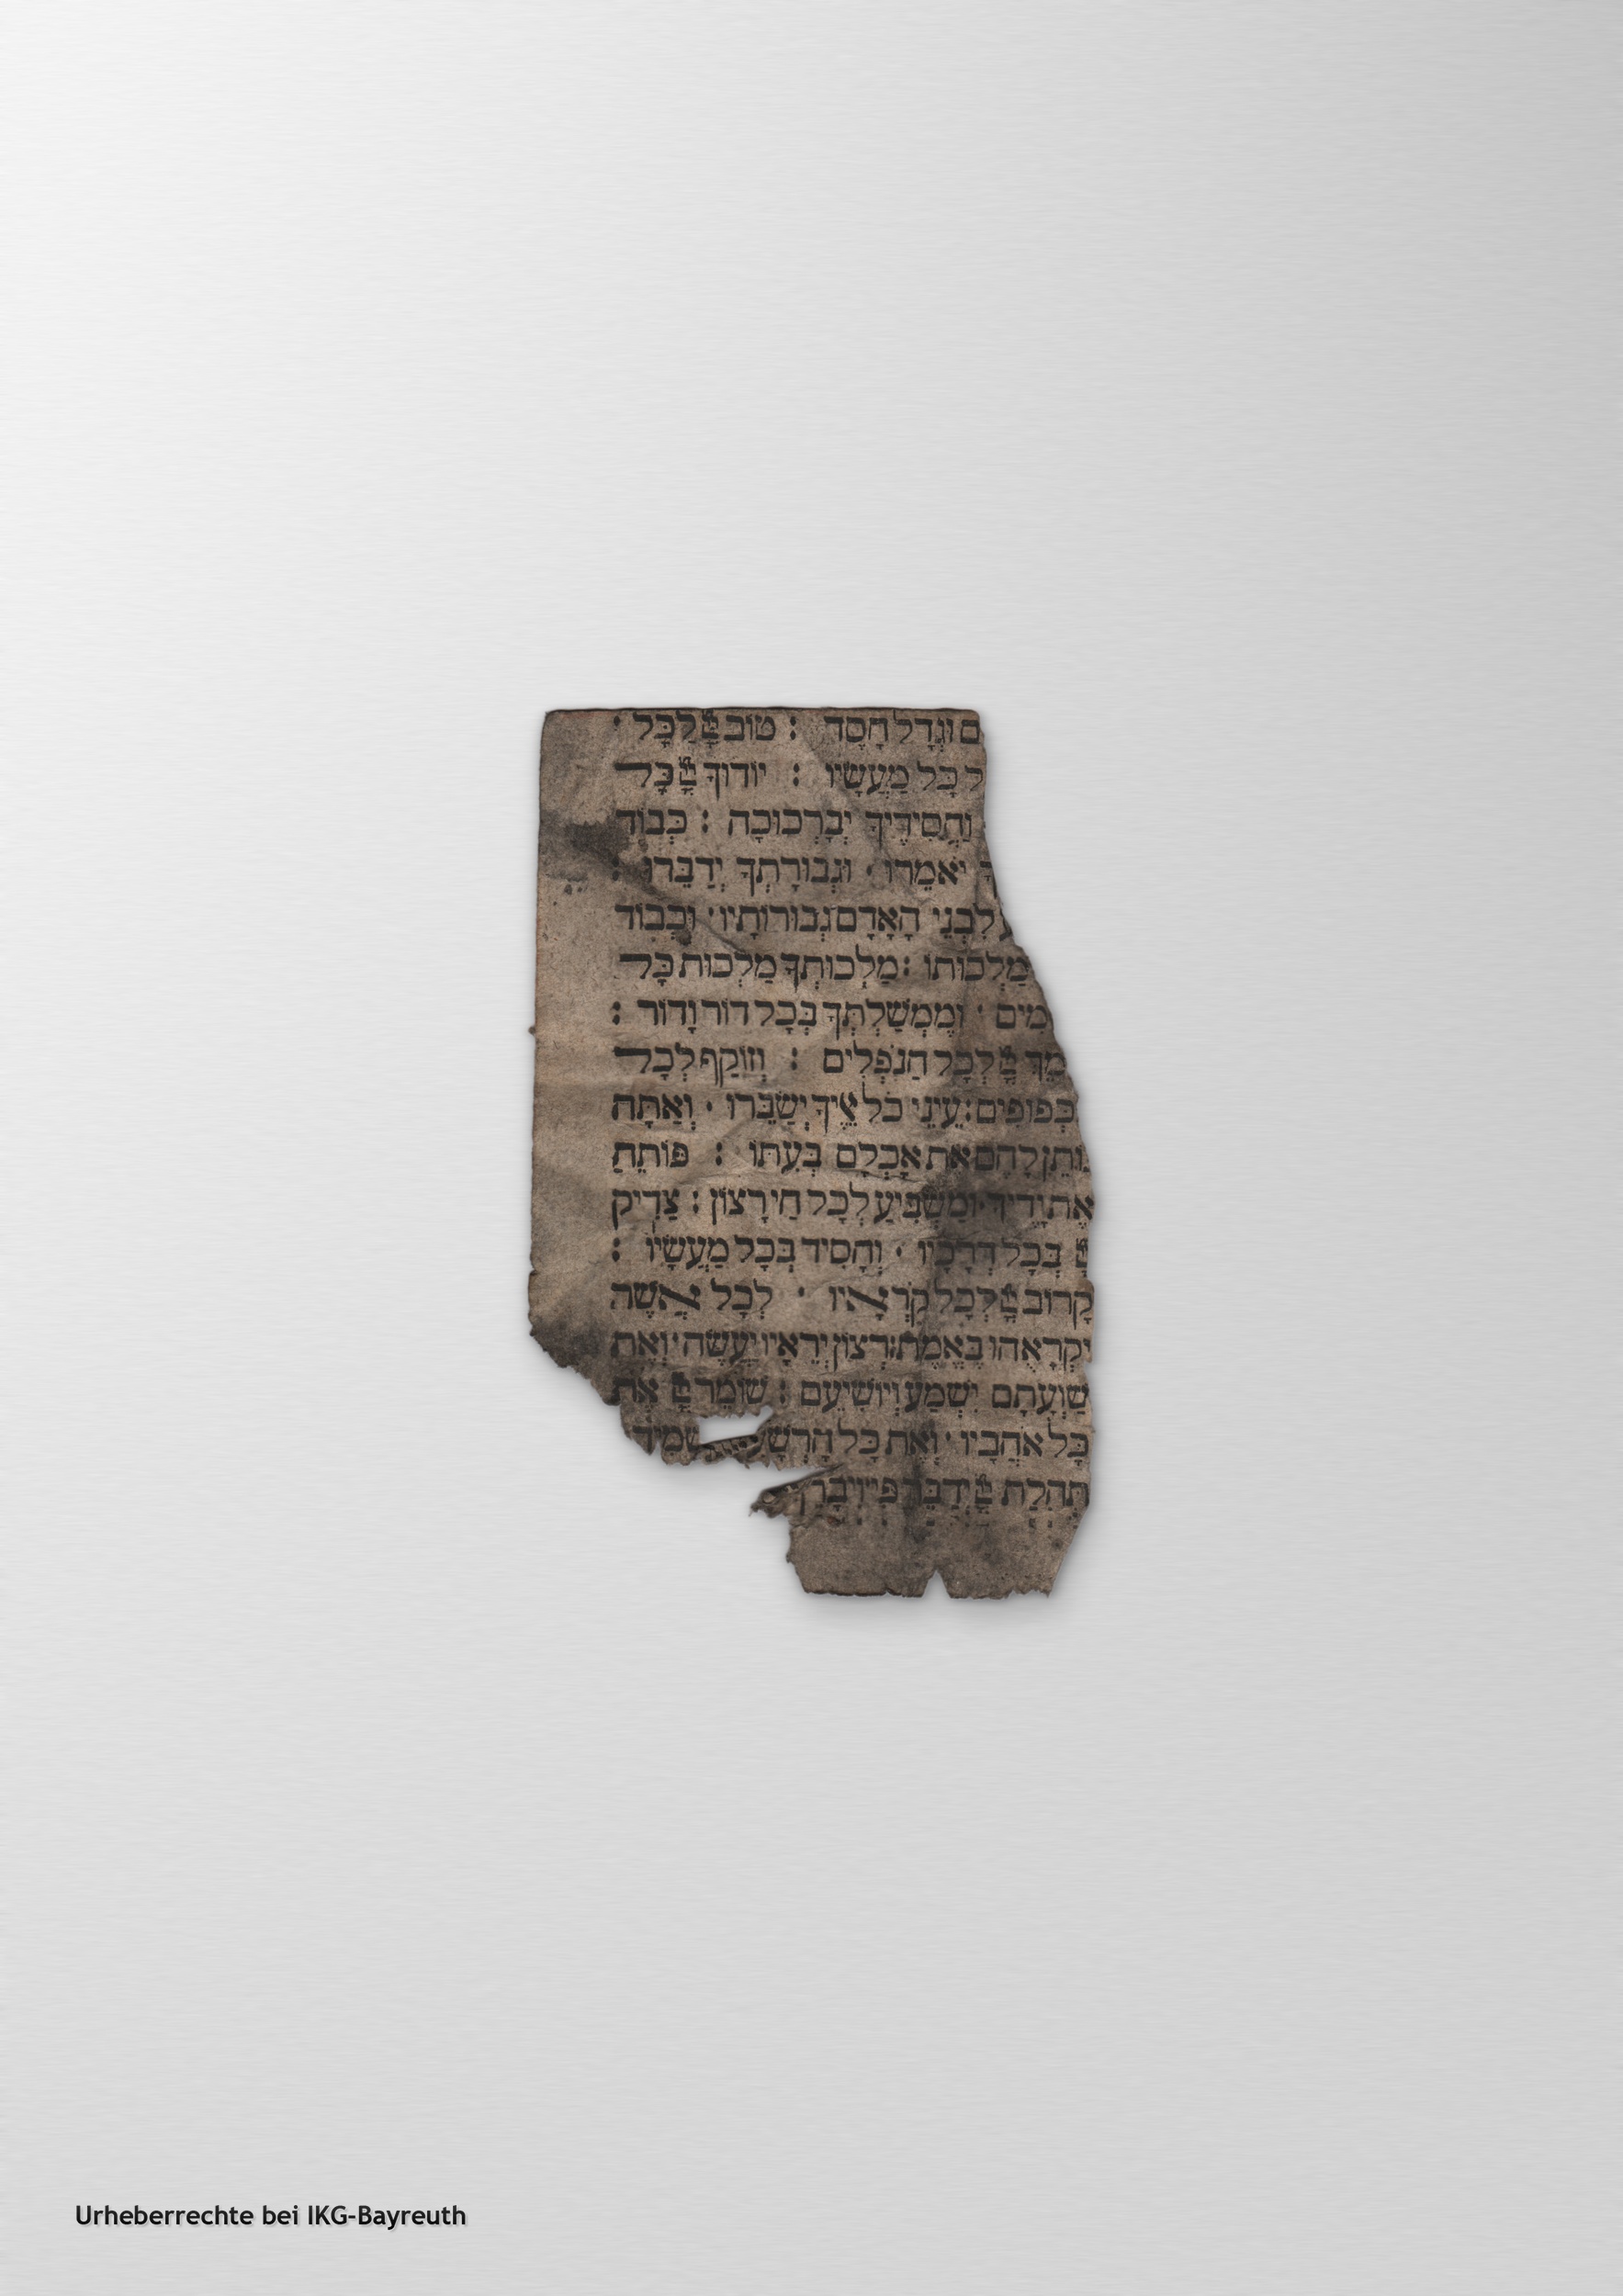 ם וּגְדָל חָסֶד : טוֹב יְיָ לַכֹּל :
ל כָּל מַעֲשָׂיו : יוֹדוּךָ יְיָ כָּל
וַחֲסִידֶיךָ יְבָרְכוּכָה : כְּבוֹד
יֹאמֵרוּ · וּגְבוּרָתְךָ יְדַבֵּרוּ :
לִבְנֵי הָאָדָם גְּבוּרוֹתָיו · וּכְבוֹד
מַלְכוּתוֹ : מַלְכוּתְךָ מַלְכוּת כָּל
מִים · וּמֶמְשַׁלְתְּךָ בְּכָל דּוֹר וָדוֹר :
מֵךְ יְיָ לְכָל הַנֹּפְלִים : וְזוֹקֵף לְכָל
כְּפוּפִים : עֵינֵי כֹל אֵלֶיךָ יְשַׂבֵּרוּ · וְאַתָּה
נוֹתֵן לָהֶם אֶת אָכְלָם בְּעִתּוֹ : פּוֹתֵחַ
אֶת יָדֶיךָ · וּמַשְׂבִּיעַ לְכָל חַי רָצוֹן : צַדִּיק
יְיָ בְּכָל דְּרָכָיו · וְחָסִיד בְּכָל מַעֲשָׂיו :
קָרוֹב יְיָ לְכָל קֹרְאָיו · לְכֹל אֲשֶׁר
יִקְרָאֻהוּ בֶאֱמֶת : רְצוֹן יְרֵאָיו יַעֲשֶׂה · וְאֶת
שַׁוְעָתָם יִשְׁמַע וְיוֹשִׁיעֵם : שׁוֹמֵר יְיָ אֶת
כָּל אֹהֲבָיו · וְאֵת כָּל הָרְשָׁ שְׁמִיד
תְּהִלַּת יְיָ יְדַבֶּר פִּי וִיבָרֵךְ
Urheberrechte bei IKG-Bayreuth